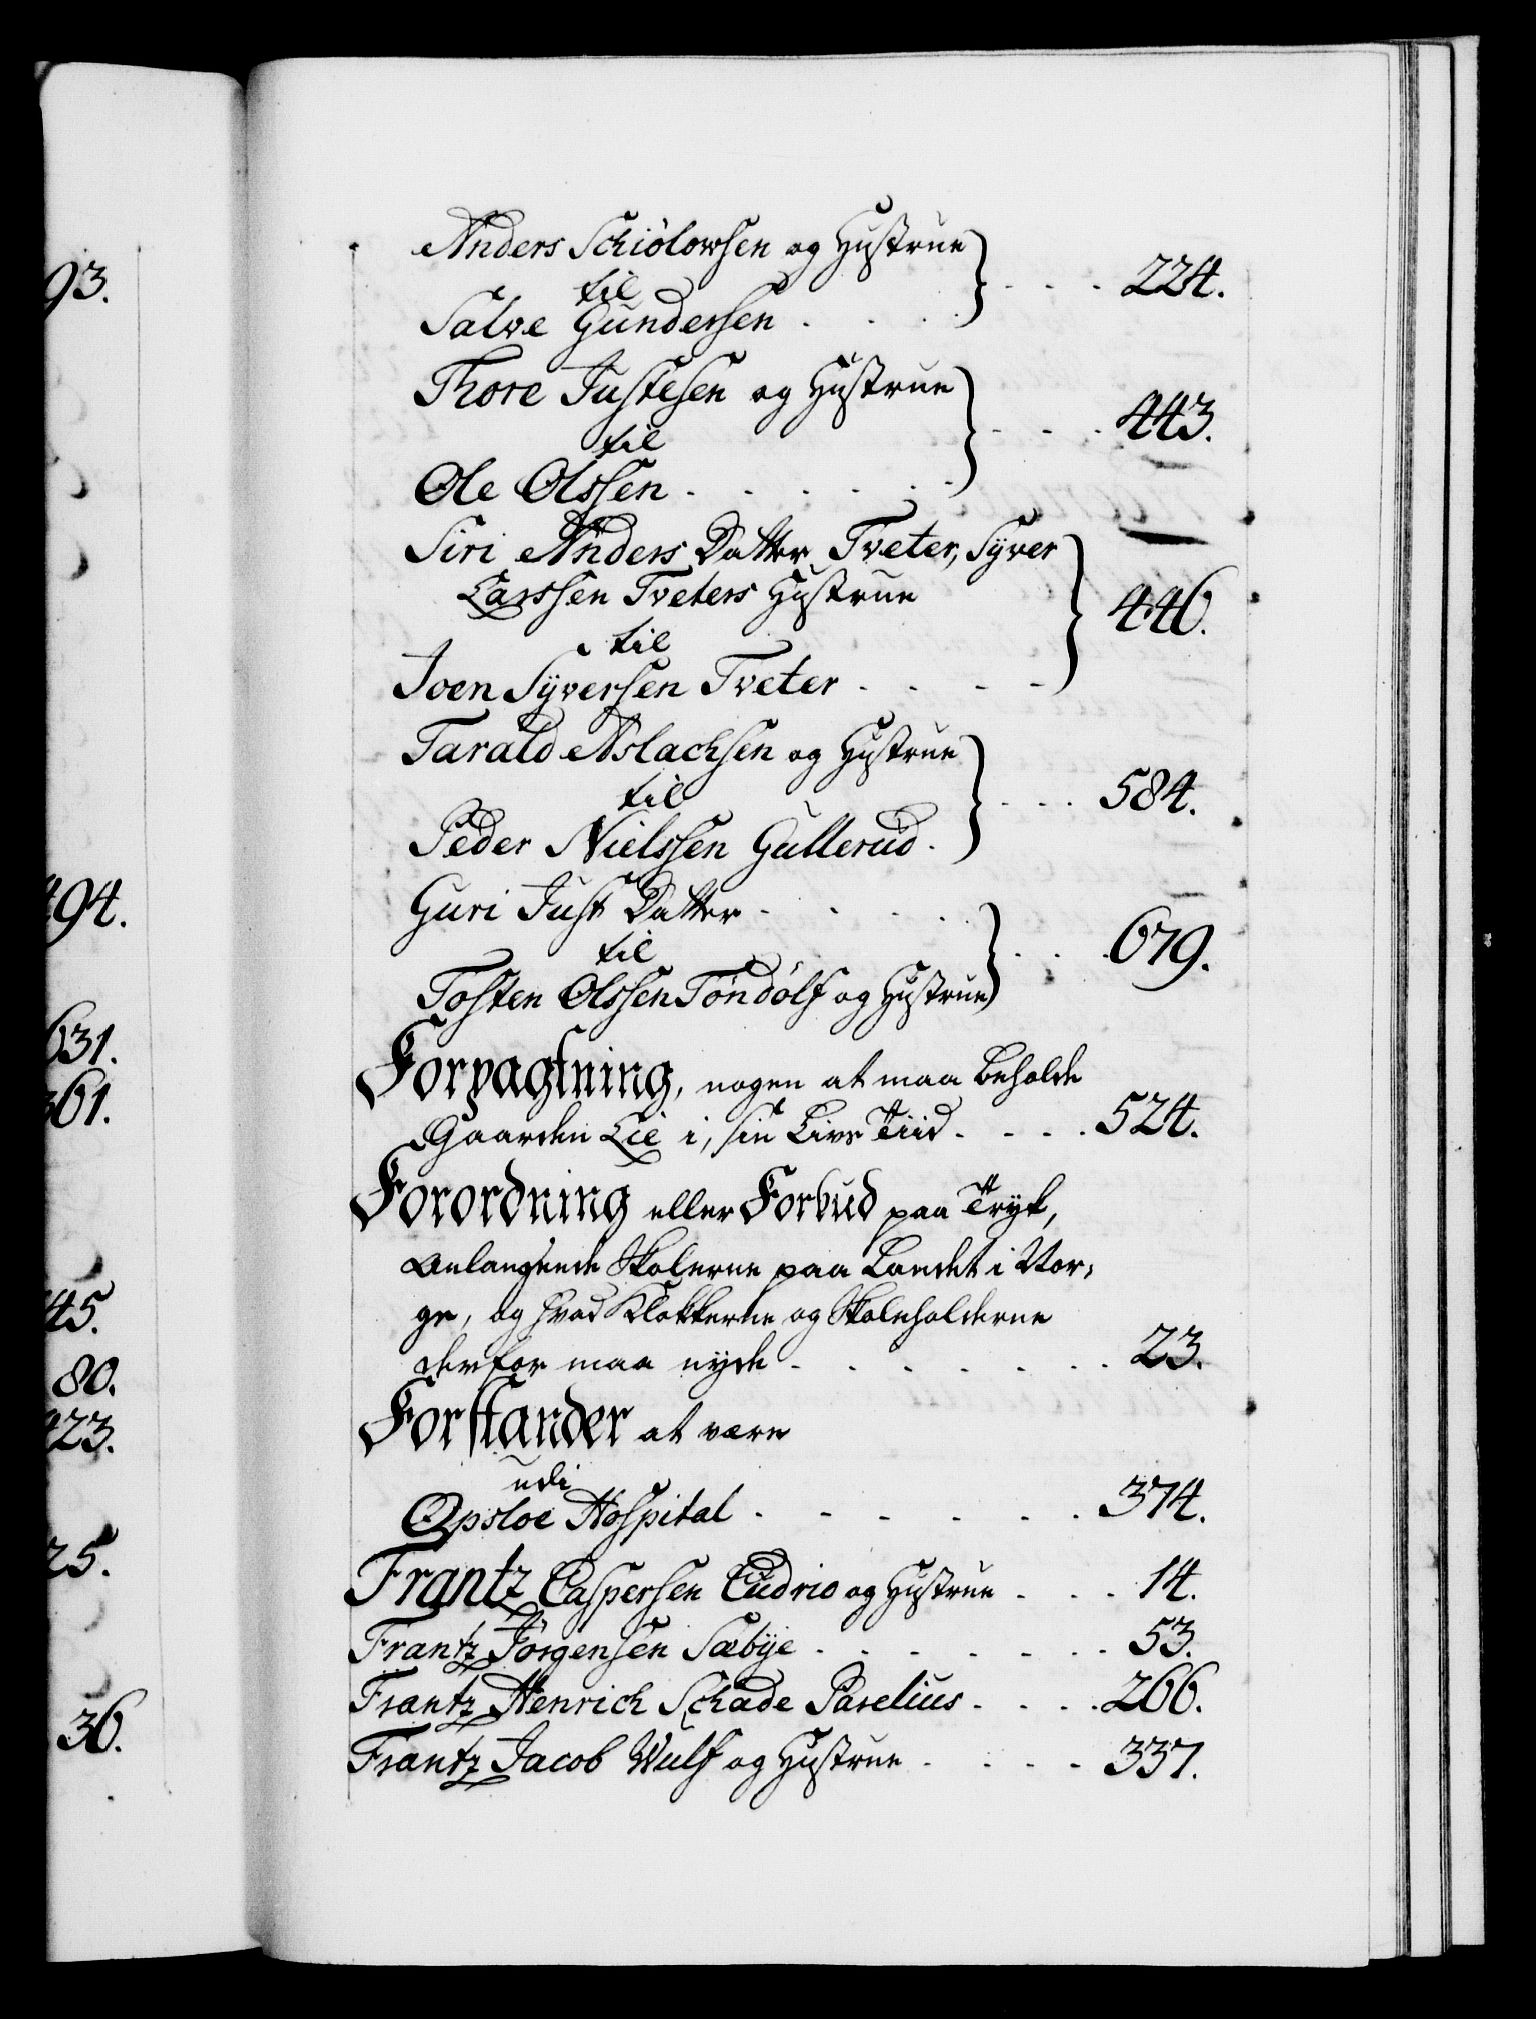 93.
494.
631.
361.
45.
80.
423.
25.
36.
Anders Schiölowsen og Hustrue
til
Salve Gundersen . . . . 224.
Thore Justesen og Hustrue
til
Ole Olssen . . . . . 443.
Siri Anders Datter Tveter, Syver
Larssen Tveters Hustrue
til
Joen Syversen Tveter . . . . 446.
Tarald Aslachsen og Hustrue
til
Peder Nielssen Gullerud . . . . 584.
Guri Just Datter . . . .
til
Tosten Olssen Tøndölf og Hustrue . . . 679.
Forpagtning, nogen at maa beholde
Gaarden Lie i, sin Livs Tiid . . . . 524.
Forordning eller Forbud paa Tryk,
anlangende Skolerne paa Landet i Nor-
ge, og hvad Klokkerne og Skoleholderne
derfor maa nyde . . . . . . 23.
Forstander at være
udi
Opsloe Hospital . . . . . . 374.
Frantz Caspersen Cudrio og Hustrue . . . 14.
Frantz Jörgensen Sæbye . . . . . . 53.
Frantz Henrich Schade Parelius . . . . 266.
Frantz Jacob Wulf og Hustrue . . . . 337.